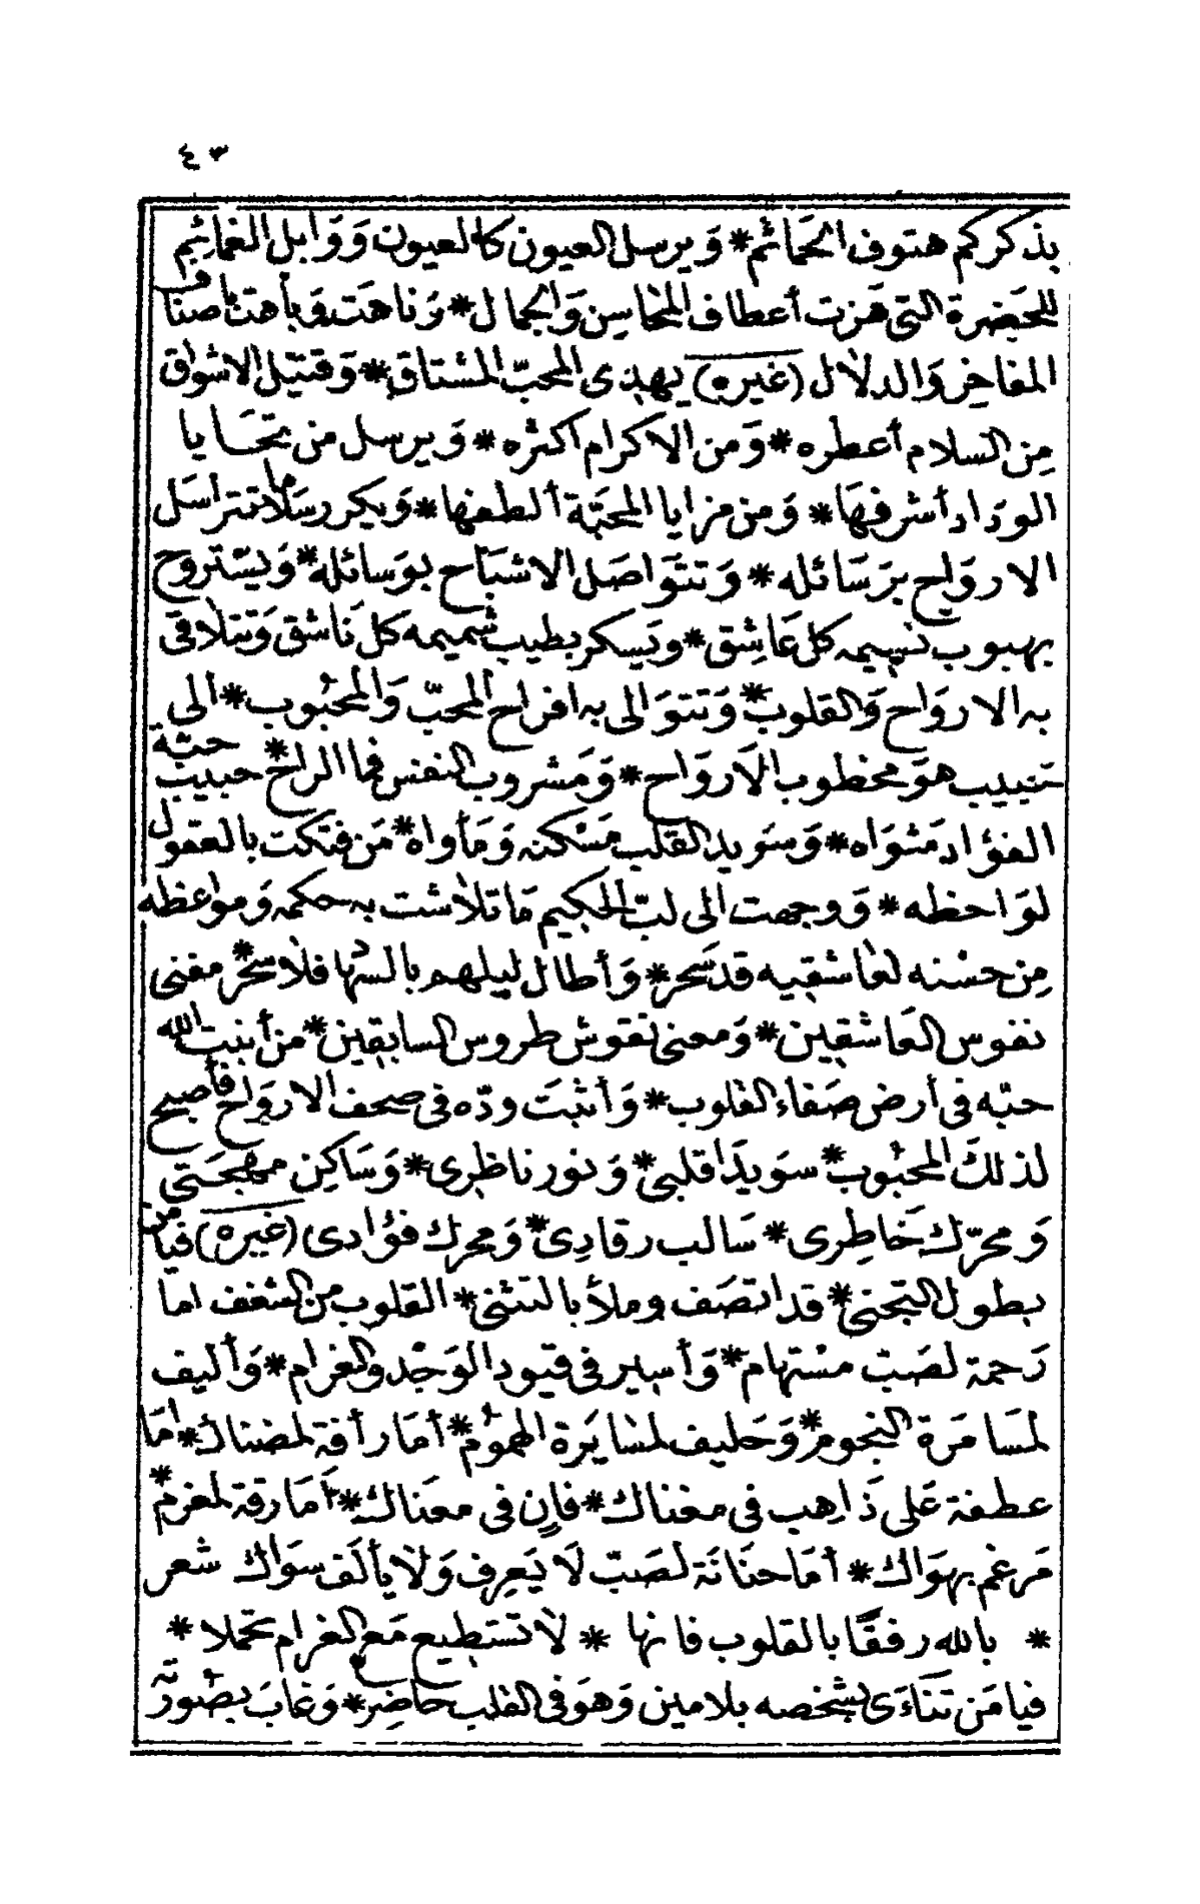 ٤٣
بذكركم هتوف الحمائم * وَيرسل العيون كالعيون وَوَابل الغمائم
للحَضرة التى هَزت أعطاف المحاسن وَالجمال * وَناهت وَباهت باصناف
المفاخر وَالدلال (غيره) يهدى المحبّ المشتاق * وَقتيل الاشواق
مِن السلام أعطره * وَمن الاكرام اكثره * وَيرسل من تحَايا
الودَاد أشرفهَا * وَمن مزايا المحَبّة ألطفها * وَيكرر رسَلاما تتراسَل
الاروَاح برَسَائله * وَتتوَاصَل الاشبَاح بوَسائله * وَيسْتروح
بهبوب نسيمه كل عَاشِق * وَيسكر بطيب شميمه كل نَاشق وَتتلاقى
به الاروَاح وَالقلوب * وَتتوَالى به افراح المحبّ وَالمحبُوب * الى
حبيب هوَ مخطوب الاَروَاح * وَمَشروب النفس فما الراح * حبيب حبّه
الفؤاد مَثوَاه * وَسوَيد القلب مَسْكنه وَمَأواه * مَن فتكت بالعقول
لوَاحظه * وَوجهت الى لبّ الحكيم مَا تلاشت به حكمه وَمواعظه
مِن حسْنه لعَاشقيه قد سَحر * وَأطال ليلهم بالسهاد فلا سحر * مفنى
نفوس العَاشقين * وَمعنى نقوش طروس السابقين * من أنبت الله
حبّه فى أرض صَفاء القلوب * وَأثبَت ودّه فى صحف الاروَاح فأصبح
لذلكَ المحبُوب * سوَيدَا قلبى * وَنور ناظرى * وَسَاكِن مهجَتى
وَمحرّك خَاطِرى * سَالب رقادِى * وَمحرك فؤادى (غيره) فيا من
بطول التجنى * قد اتصَف وملأ بالتثنى * القلوب من الشغف اما
رَحمة لصَبّ مسْتهام * وَأسير فى قيود الوَجْد وَالغرام * وَأليف
لمسَامَرة النجوم * وَحليف لمسَايَرة الهمُوم * أمَا رأفة لمضناك * امَا
عطفة عَلى ذَاهِب فى مغناك * فانٍ فى معنَاك * أمَا رقة لمغرم *
مَرغم بهوَاك * أمَا حنَانَة لصَبّ لاَ يَعرِف وَلاَ يألَف سوَاك شعر
* بالله رفقًا بالقلوب فانها * لاَ تستطيع مَع الغرام تحملا *
فيا مَن تَنَاءَى بشخصه بلا مين وَهوَ فى القلب حاضِر * وَغابَ بصُورته